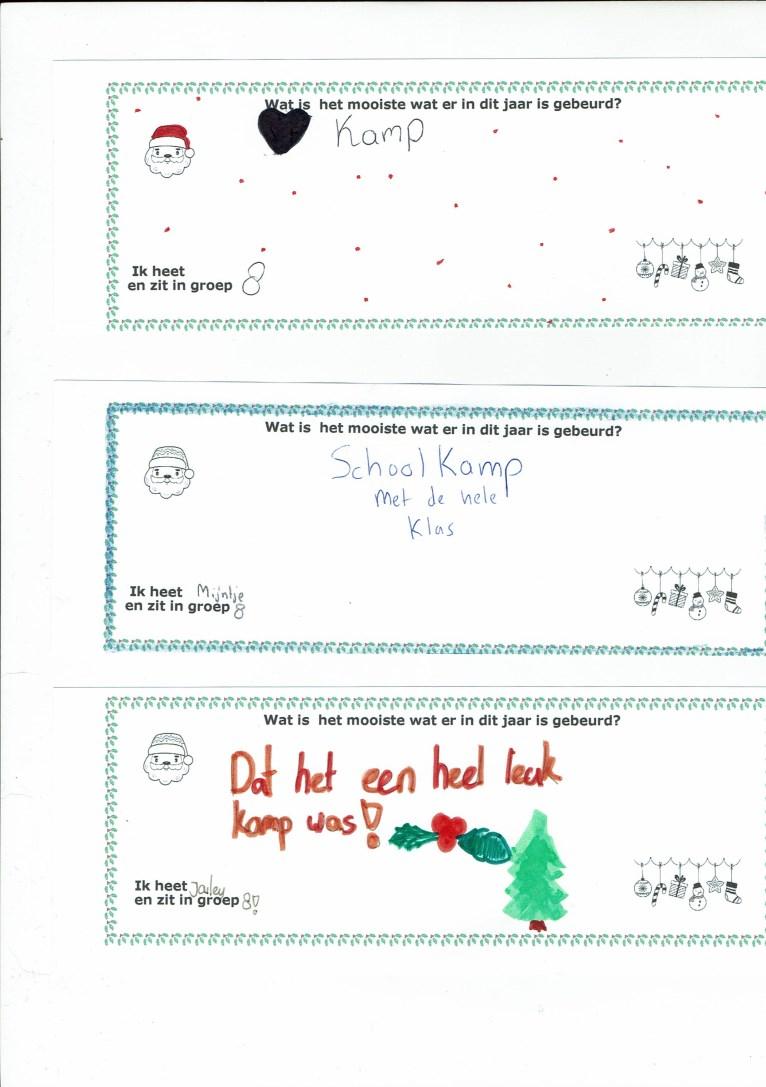 Wat is het mooiste wat er in dit jaar is gebeurd?
Kamp
Ik heet
en zit in groep 8
Wat is het mooiste wat er in dit jaar is gebeurd?
School Kamp
Met de hele
Klas
Ik heet Mijntje
en zit in groep 8
Wat is het mooiste wat er in dit jaar is gebeurd?
Dat het een heel leuk
kamp was!
Ik heet Jailey
en zit in groep 8!